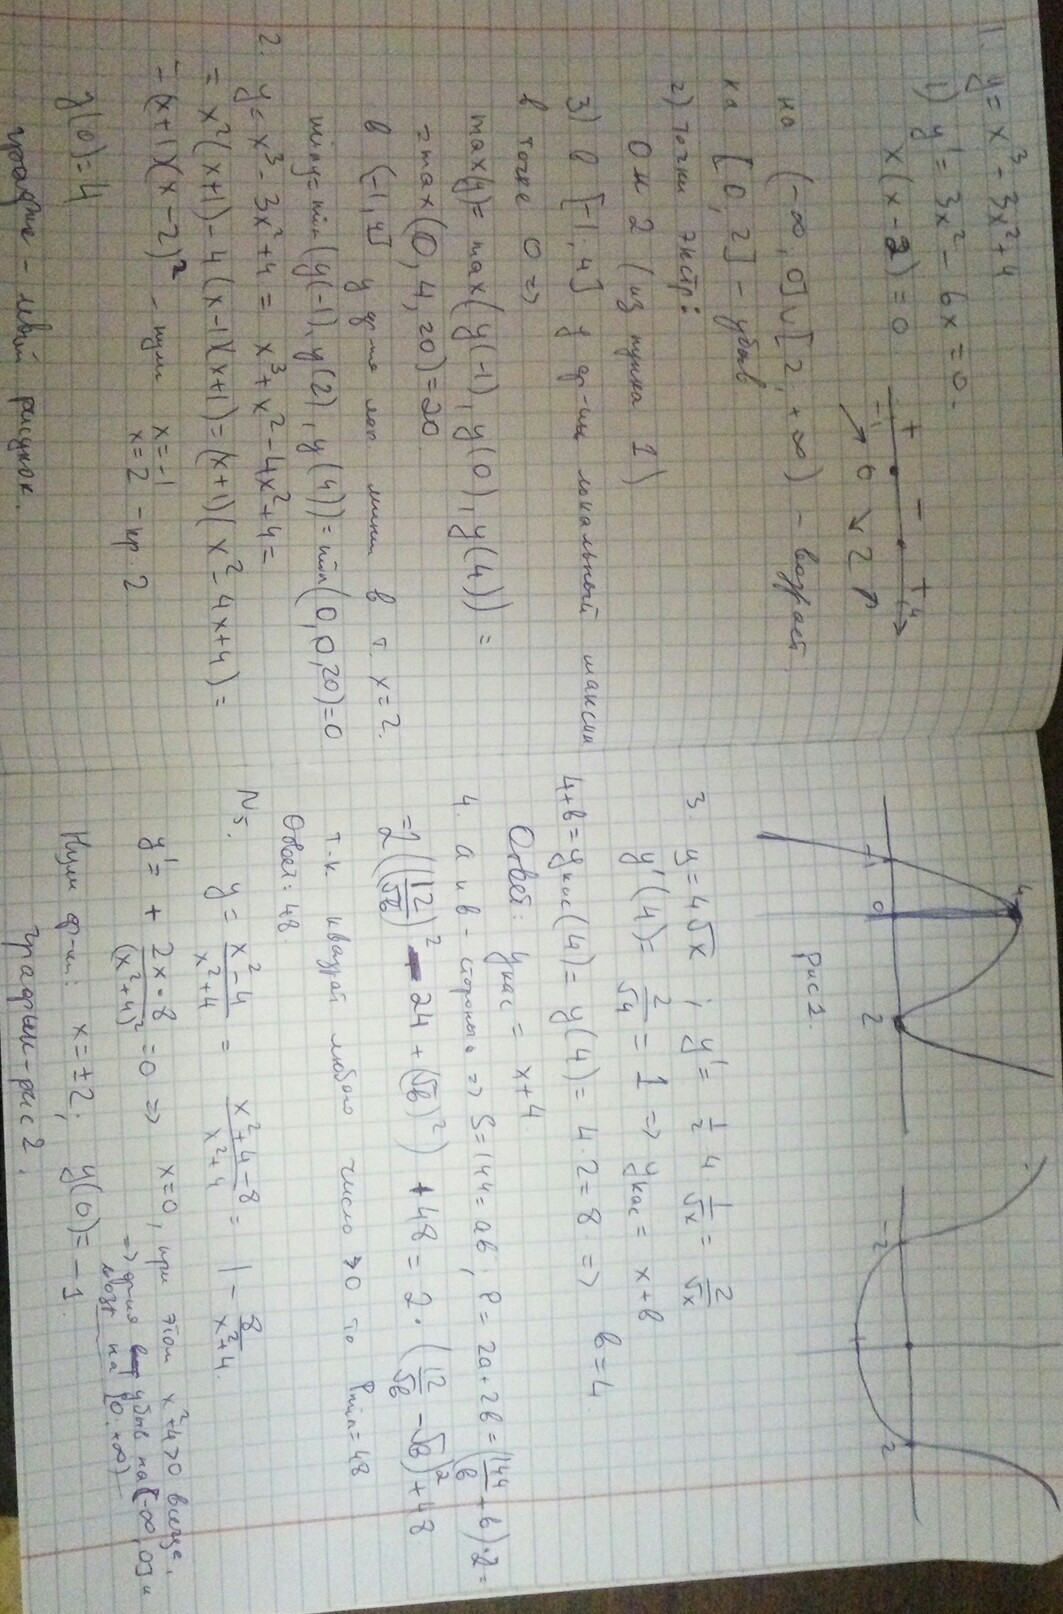 1.
y = x³ - 3x² + 4
1) y' = 3x² - 6x = 0.
x(x - 2) = 0
+ - +
-1 0 2 4
на (-∞, 0]∪[2, +∞) - возраст.
на [0, 2] - убыв
2) точки экстр:
0 и 2 (из пункта 1)
3) в [-1, 4] у ф-ии локальный максим
в точке 0 =>
max(y) = max(y(-1), y(0), y(4)) =
= max(0, 4, 20) = 20
в [-1, 4] у ф-ии лок миним в т. x = 2.
min y = min(y(-1), y(2), y(4)) = min(0, 0, 20) = 0
2. y = x³ - 3x² + 4 = x³ + x² - 4x² + 4 =
= x²(x + 1) - 4(x - 1)(x + 1) = (x + 1)(x² - 4x + 4) =
= (x + 1)(x - 2)² - нули x = -1
x = 2 - кр. 2
y(0) = 4
график - левый рисунок.
4
-1 0 2
Рис 1.
-2 2
3. y = 4√x ; y' = 1/2 4 1/√x = 2/√x
y'(4) = 2/√4 = 1 => yкас = x + b
4 + b = yкас(4) = y(4) = 4 · 2 = 8 => b = 4
Ответ: yкас = x + 4.
4. a и b - стороны => S = 144 = ab ; P = 2a + 2b = (144/b + b)·2 =
= 2((12/√b)² - 24 + (√b)²) + 48 = 2 · (12/√b - √b)² + 48
т.к квадрат любого число ≥ 0 то Pmin = 48
Ответ: 48.
N5. y = x² - 4/x² + 4 = x² + 4 - 8/x² + 4 = 1 - 8/x² + 4.
y' = + 2x · 8/(x² + 4)² = 0 => x = 0, при этом x² + 4 > 0 всегда.
=> ф-ия убыв на (-∞, 0] и
возр на [0. +∞)
Нули ф-ии: x = ±2; y(0) = -1.
График - рис 2.